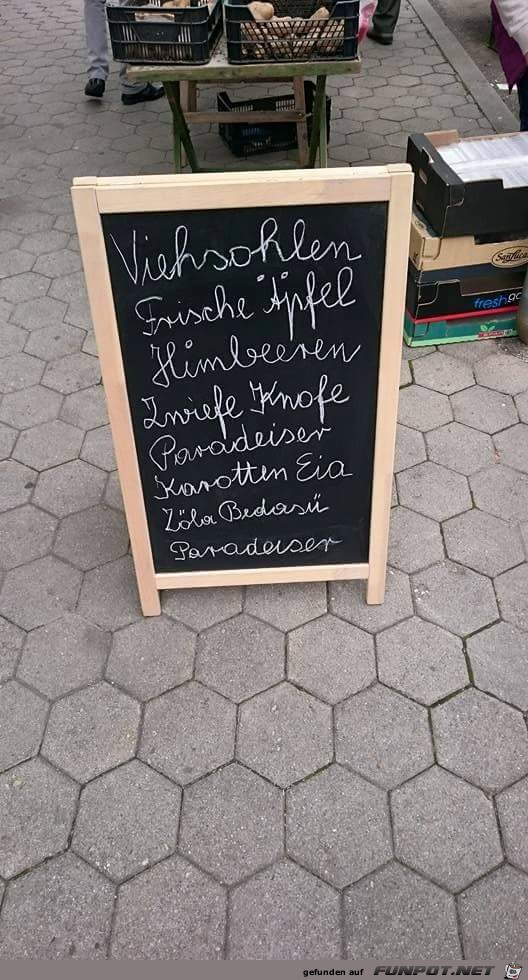 Viehsohlen
Frische Äpfel
Himbeeren
Zwiefe Knofe
Paradeiser
Karotten Eia
Zöla Bedasü
Paradeiser
SanLucar
fresh
gefunden auf FUNPOT.NET